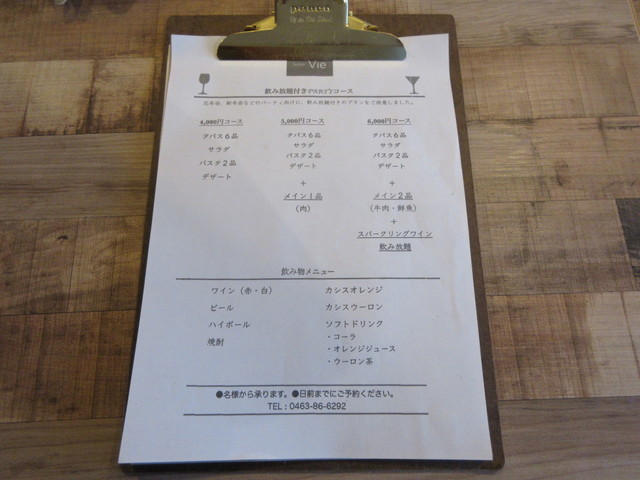 ponco
Vie
飲み放題付きPARTYコース
忘年会、新年会などのパーティ向けに、飲み放題付きのプランをご用意しました。
4,000円コース
タパス6品
サラダ
パスタ2品
デザート
5,000円コース
タパス6品
サラダ
パスタ2品
デザート
+
メイン1品
(肉)
6,000円コース
タパス6品
サラダ
パスタ2品
デザート
+
メイン2品
(牛肉・鮮魚)
+
スパークリングワイン
飲み放題
飲み物メニュー
ワイン(赤・白)
ビール
ハイボール
焼酎
カシスオレンジ
カシスウーロン
ソフトドリンク
・コーラ
・オレンジジュース
・ウーロン茶
●名様から承ります。●日前までにご予約ください。
TEL:0463-86-6292